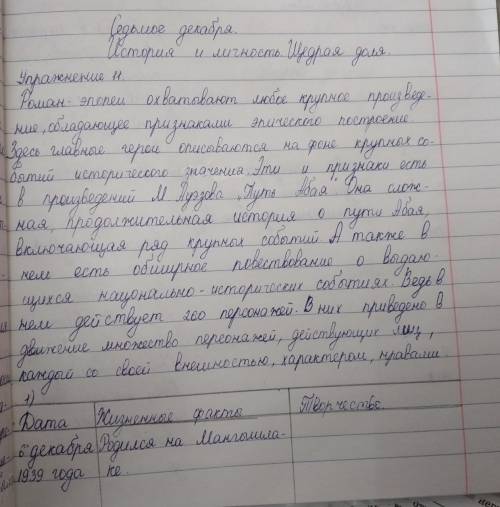 Седьмое декабря.
История и личность. Щедрая доля.
Упражнение 11.
Роман-эпопеи охватывают любое крупное произведе-
ние, обладающее признаками эпического построение.
Здесь главные герои описываются на фоне крупных со-
бытий исторического значения. Эти и признаки есть
в произведений М Ауэзова "Путь Абая" Она слож-
ная, продолжительная история о пути Абая,
включающая ряд крупных событий А также в
нем есть обширное повествование о выдаю-
щихся национально-исторических событиях. Ведь в
нем действует 260 персонажей. В них приведено в
движение множество персонажей, действующих лиц,
каждый со своей внешностью, характером, нравами.
1)
Дата Жизненные факты Творчество.
5 декабря Родился на Мангошла-
1939 года ке.